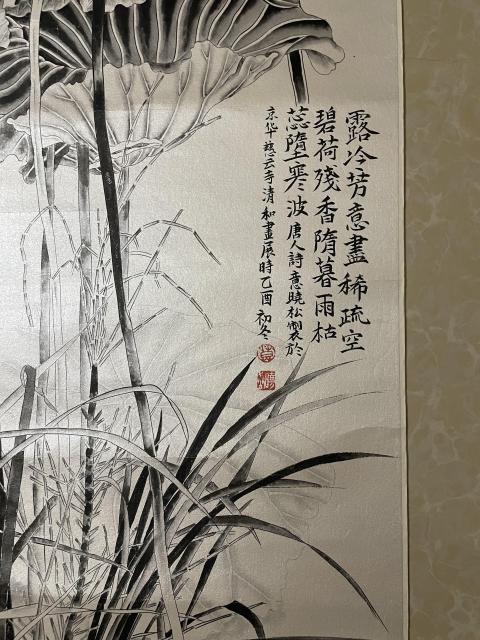 露冷芳意盡稀疏空
碧荷殘香隋暮雨枯
蕊墮寒波唐人詩意曉松製於
京华慈云寺清和畫展時乙酉初冬